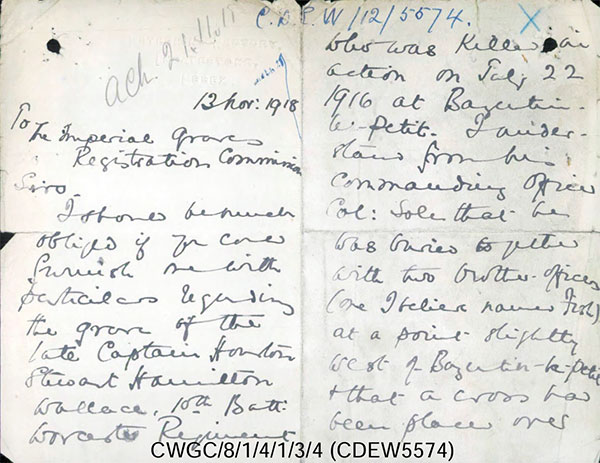 C.D.E.W/12/5574.
ach 21/11/18
13 Nov: 1918
To
The Imperial Graves
Registration Commission
Sirs.
I should be much
obliged if you could
furnish me with
particulars regarding
the grave of the
late Captain Houston
Stewart Hamilton
Wallace, 10th Batt:
Worcester Regiment
who was killed in
action on July 22
1916 at Bazentin-
le-Petit. I under-
stand from his
Commanding Officer
Col: Sole that he
was buried together
with two brother-officers
(one I believe named Fish)
at a point slightly
west of Bazentin-le-Petit
& that a cross has
been placed over
CWGC/8/1/4/1/3/4 (CDEW5574)